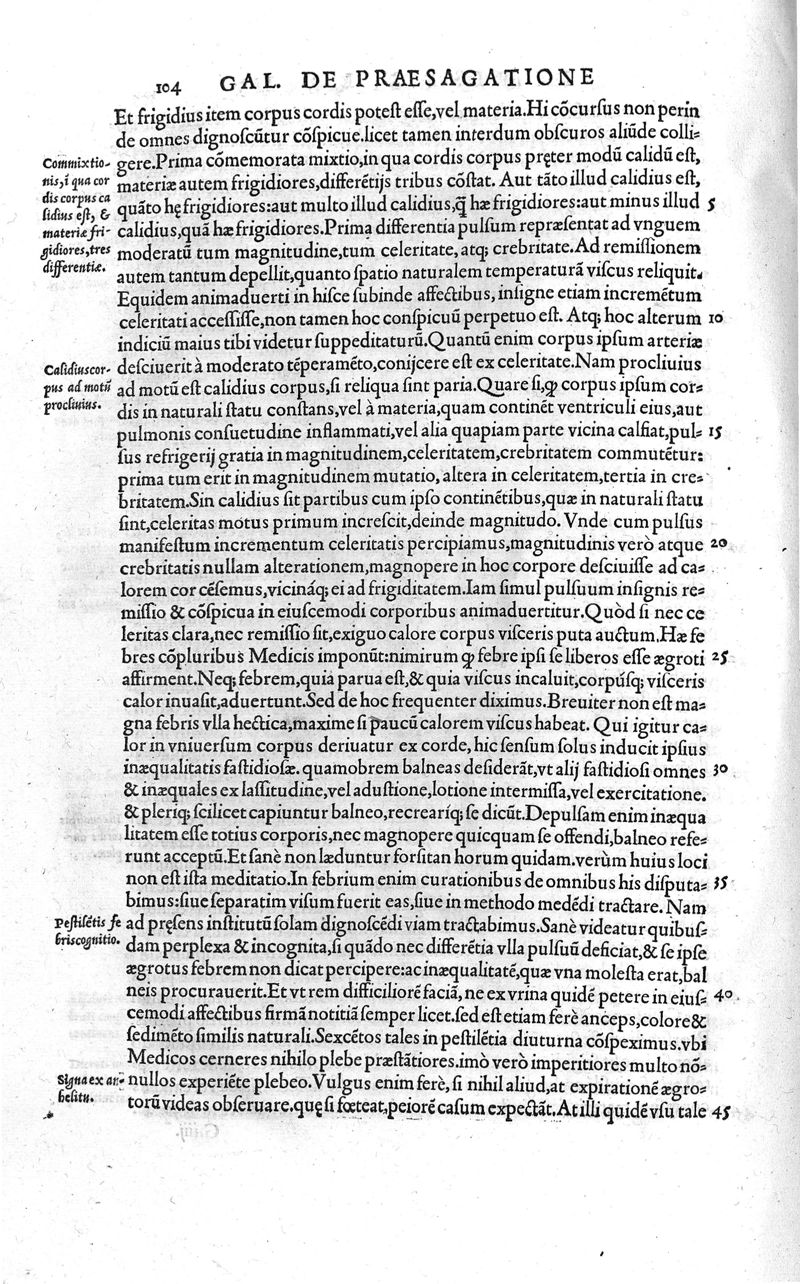 104 GAL. DE PRAESAGATIONE
Et frigidius item corpus cordis potest esse,vel materia.Hi cōcursus non perin
de omnes dignoscūtur cōspicue.licet tamen interdum obscuros aliūde colli-
gere.Prima cōmemorata mixtio,in qua cordis corpus pręter modū calidū est,
materiæ autem frigidiores,differētijs tribus cōstat. Aut tāto illud calidius est,
quāto hę frigidiores:aut multo illud calidius,q̄ hæ frigidiores:aut minus illud 5
calidius,quā hæ frigidiores.Prima differentia pulsum repræsentat ad vnguem
moderatū tum magnitudine,tum celeritate, atq; crebritate.Ad remissionem
autem tantum depellit,quanto spatio naturalem temperaturā viscus reliquit.
Equidem animaduerti in hisce subinde affectibus, insigne etiam incremētum
celeritati accessisse,non tamen hoc conspicuū perpetuo est. Atq; hoc alterum 10
indiciū maius tibi videtur suppeditaturū.Quantū enim corpus ipsum arteriæ
desciuerit à moderato tēperamēto,conijcere est ex celeritate.Nam procliuius
ad motū est calidius corpus,si reliqua sint paria.Quare si,ꝙ corpus ipsum cor-
dis in naturali statu constans,vel à materia,quam continēt ventriculi eius,aut
pulmonis consuetudine inflammati,vel alia quapiam parte vicina calfiat,pul- 15
sus refrigerij gratia in magnitudinem,celeritatem,crebritatem commutētur:
prima tum erit in magnitudinem mutatio, altera in celeritatem,tertia in cre-
britatem.Sin calidius sit partibus cum ipso continētibus,quæ in naturali statu
sint,celeritas motus primum increscit,deinde magnitudo. Vnde cum pulsus
manifestum incrementum celeritatis percipiamus,magnitudinis verò atque 20
crebritatis nullam alterationem,magnopere in hoc corpore desciuisse ad ca-
lorem cor cēsemus,vicináq; ei ad frigiditatem.Iam simul pulsuum insignis re-
missio & cōspicua in eiuscemodi corporibus animaduertitur.Quòd si nec ce
leritas clara,nec remissio sit,exiguo calore corpus visceris puta auctum.Hæ fe
bres cōpluribus Medicis imponūt:nimirum ꝙ febre ipsi se liberos esse ægroti 25
affirment.Neq; febrem,quia parua est,& quia viscus incaluit,corpúsq; visceris
calor inuasit,aduertunt.Sed de hoc frequenter diximus.Breuiter non est ma-
gna febris vlla hectica,maxime si paucū calorem viscus habeat. Qui igitur ca-
lor in vniuersum corpus deriuatur ex corde, hic sensum solus inducit ipsius
inæqualitatis fastidiosæ. quamobrem balneas desiderāt,vt alij fastidiosi omnes 30
& inæquales ex lassitudine,vel adustione,lotione intermissa,vel exercitatione.
& pleriq; scilicet capiuntur balneo,recrearíq; se dicūt.Depulsam enim inæqua
litatem esse totius corporis,nec magnopere quicquam se offendi,balneo refe-
runt acceptū.Et sanè non læduntur forsitan horum quidam.verùm huius loci
non est ista meditatio.In febrium enim curationibus de omnibus his disputa- 35
bimus:siue separatim visum fuerit eas,siue in methodo medēdi tractare. Nam
ad pręsens institutū solam dignoscēdi viam tractabimus.Sanè videatur quibus-
dam perplexa & incognita,si quādo nec differētia vlla pulsuū deficiat,& se ipse
ægrotus febrem non dicat percipere:ac inæqualitatē,quæ vna molesta erat,bal
neis procurauerit.Et vt rem difficiliorē faciā, ne ex vrina quidē petere in eius- 40
cemodi affectibus firmā notitiā semper licet.sed est etiam ferè anceps,colore &
sedimēto similis naturali.Sexcētos tales in pestilētia diuturna cōspeximus.vbi
Medicos cerneres nihilo plebe præstātiores.imò verò imperitiores multo nō-
nullos experiēte plebeo.Vulgus enim ferè, si nihil aliud,at expirationē ægro-
torū videas obseruare.quę si fœteat,peiorē casum expectāt.At illi quidē vsu tale 45
Commixtio-
nis,ī qua cor
dis corpus ca
lidius est, &
materiæ fri-
gidiores,tres
differentiæ.
Calidius cor-
pus ad motū
procliuius.
Pestilētis fe
bris cognitio.
Signa ex an-
helitu.